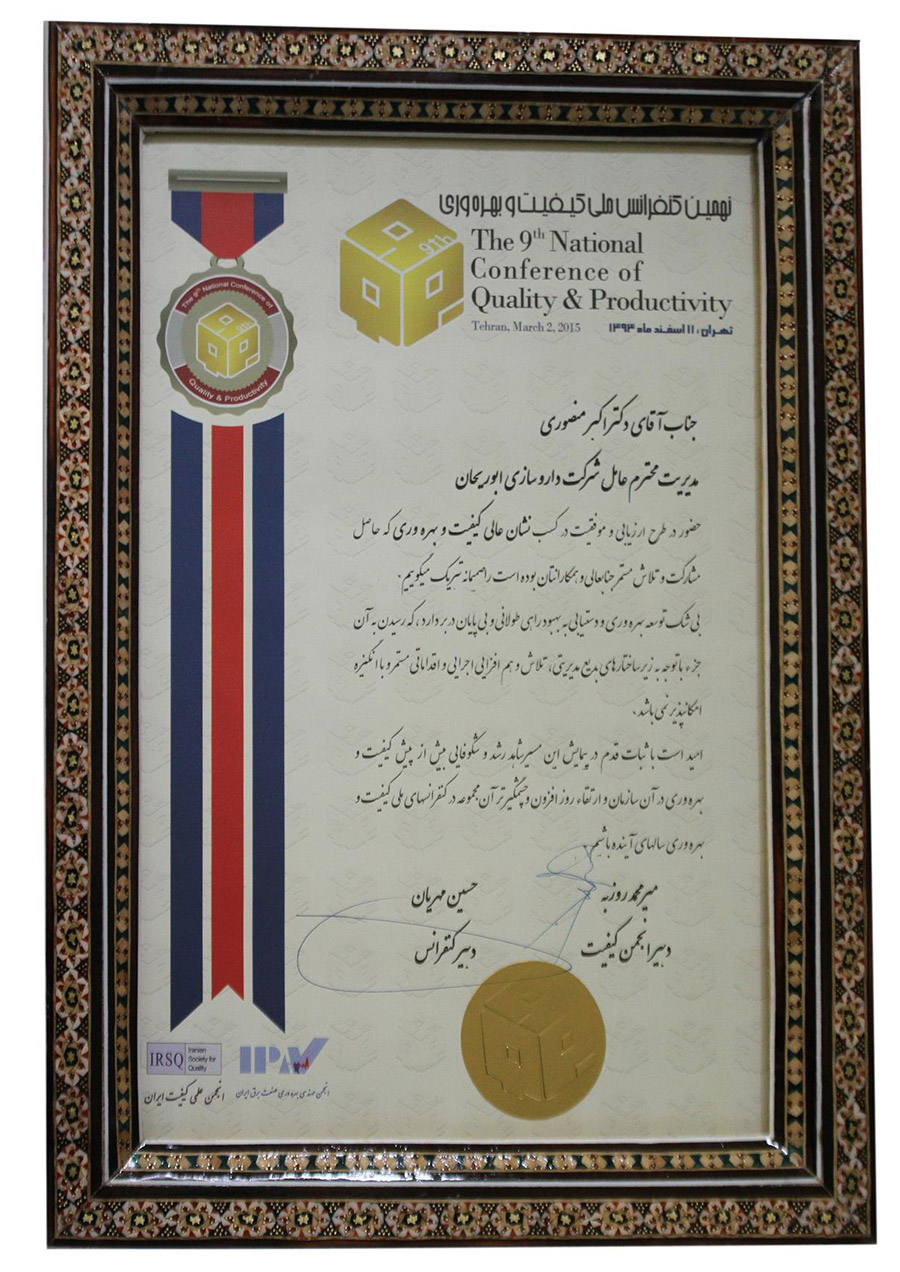 نهمین کنفرانس ملی کیفیت و بهره وری
9th
The 9th National
Conference of
Quality & Productivity
Tehran, March 2, 2015 تهران ؛ ۱۱ اسفند ماه ۱۳۹۳
The 9th National Conference of
9th
Quality & Productivity
جناب آقای دکتر اکبر منصوری
مدیریت محترم عامل شرکت دارو سازی ابوریحان
حضور در طرح ارزیابی و موفقیت در کسب نشان عالی کیفیت و بهره وری که حاصل
مشارکت و تلاش مستمر جنابعالی و همکارانتان بوده است را صمیمانه تبریک میگوییم.
بی شک توسعه بهره وری و دستیابی به بهبود راهی طولانی و بی پایان در بر دارد ، که رسیدن به آن
جزء با توجه به زیر ساختارهای بدیع مدیریتی، تلاش و هم افزایی اجرایی و اقداماتی مستمر و با انگیزه
امکانپذیر نمی باشد .
امید است با ثبات قدم در پیمایش این مسیر شاهد رشد و شکوفایی بیش از پیش کیفیت و
بهره وری در آن سازمان و ارتقاء روز افزون و چشمگیرتر آن مجموعه در کنفرانسهای ملی کیفیت و
بهره وری سالهای آینده باشیم.
میر محمد روزبه حسین مهریان
دبیر انجمن کیفیت دبیر کنفرانس
IRSQ Iranian
Society for
Quality
انجمن علمی کیفیت ایران
انجمن مهندسی بهره وری صنعت برق ایران